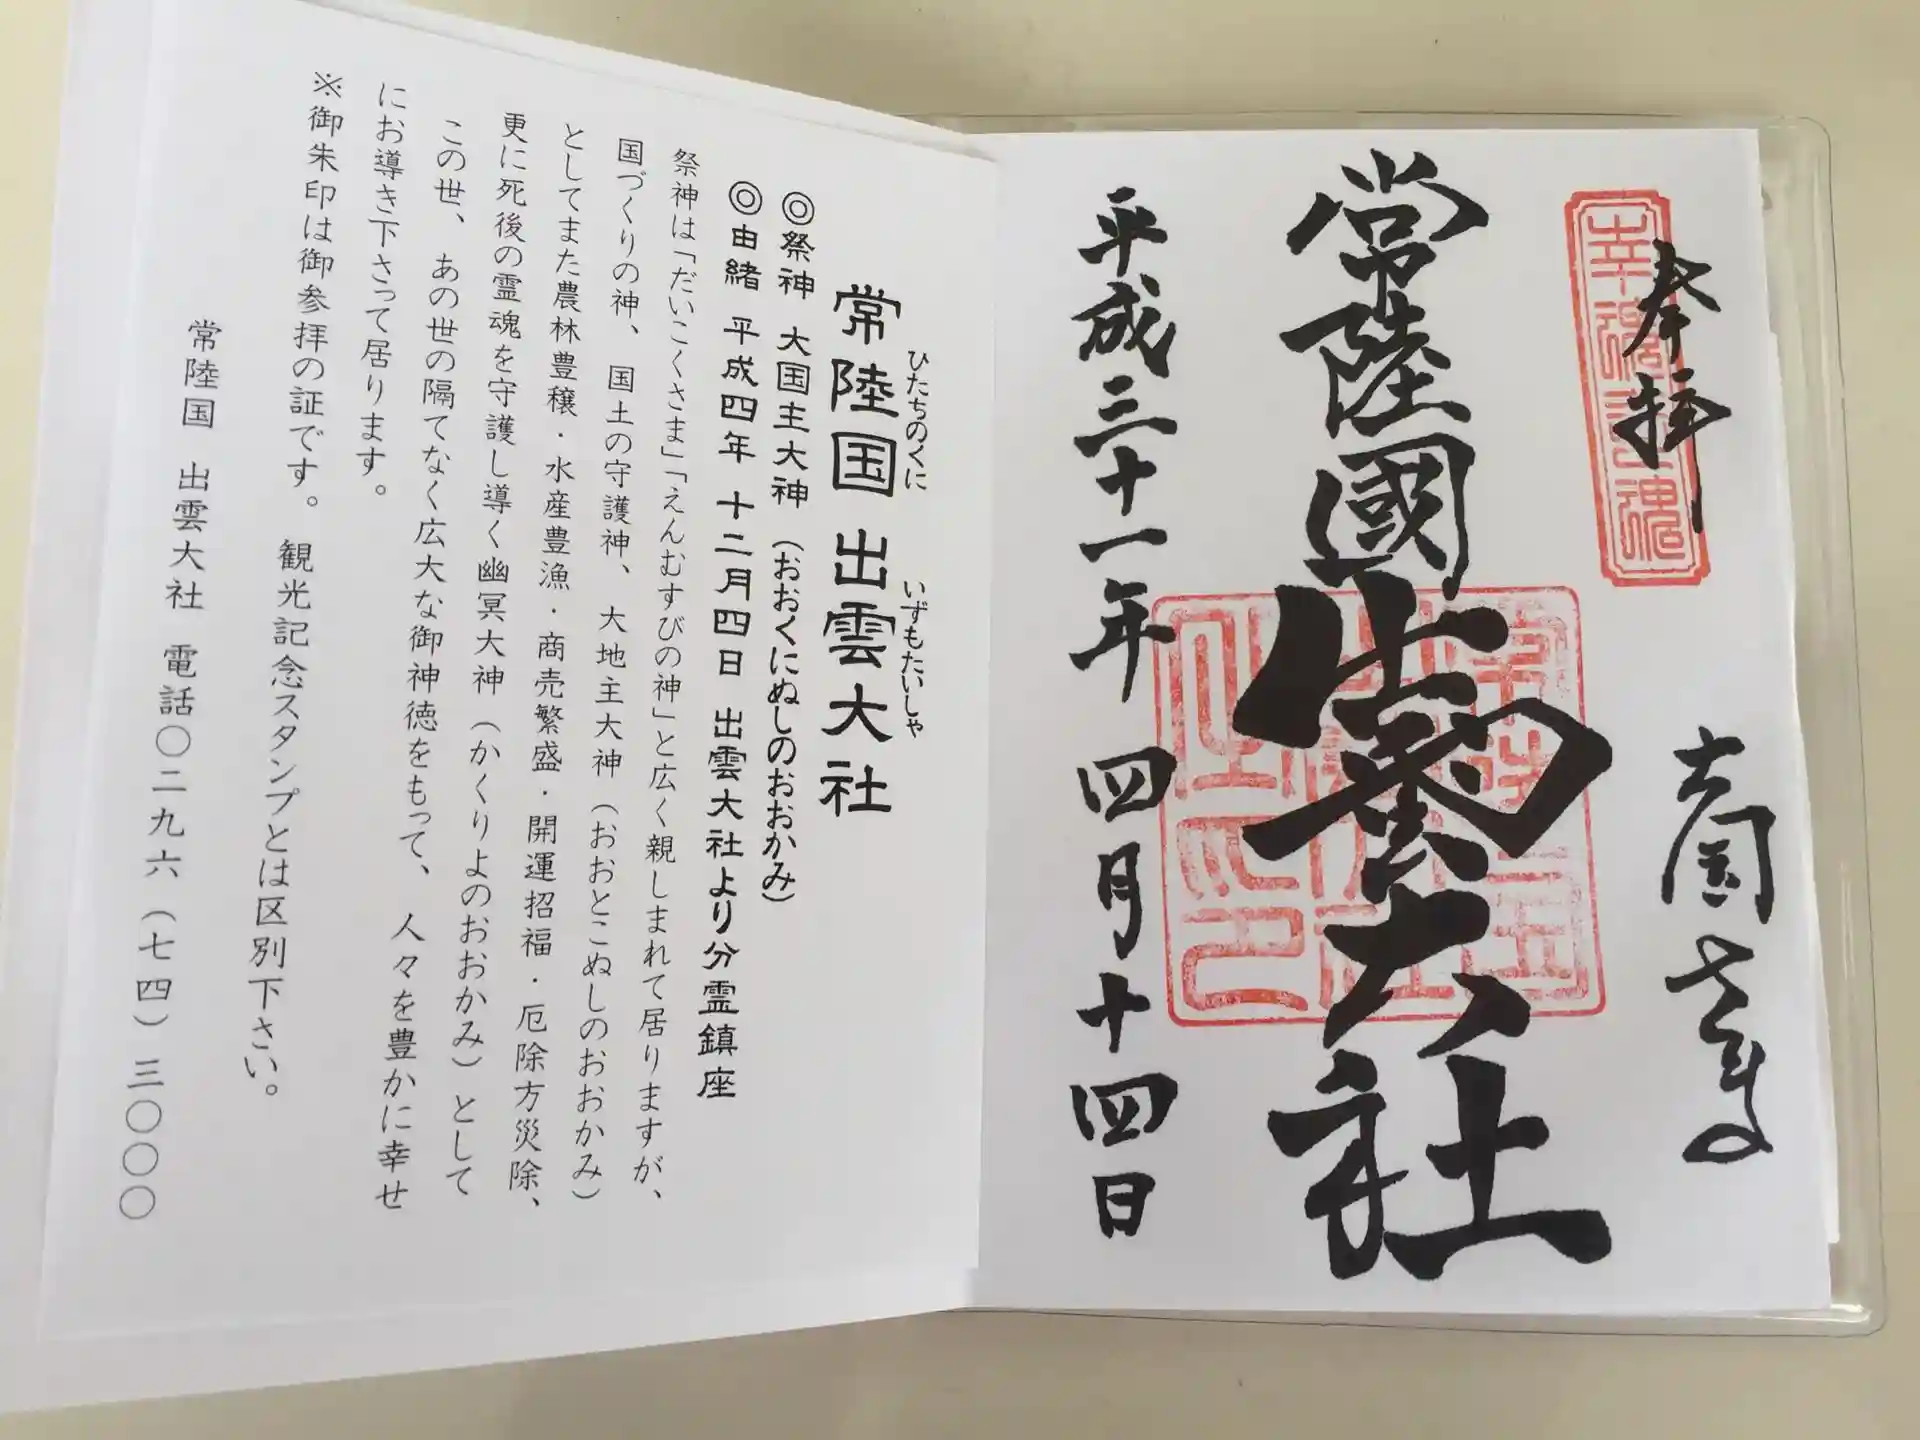 奉拝
大国さま
常陸國出雲大社
平成三十一年 四月十四日
ひたちのくに いずもたいしゃ
常陸国 出雲大社
◎祭神 大国主大神(おおくにぬしのおおかみ)
◎由緒 平成四年 十二月四日 出雲大社より分霊鎮座
祭神は「だいこくさま」「えんむすびの神」と広く親しまれて居りますが、
国づくりの神、国土の守護神、大地主大神(おおとこぬしのおおかみ)
としてまた農林豊穣・水産豊漁・商売繁盛・開運招福・厄除方災除、
更に死後の霊魂を守護し導く幽冥大神(かくりよのおおかみ)として
この世、あの世の隔てなく広大な御神徳をもって、人々を豊かに幸せ
にお導き下さって居ります。
※御朱印は御参拝の証です。観光記念スタンプとは区別下さい。
常陸国 出雲大社 電話〇二九六(七四)三〇〇〇